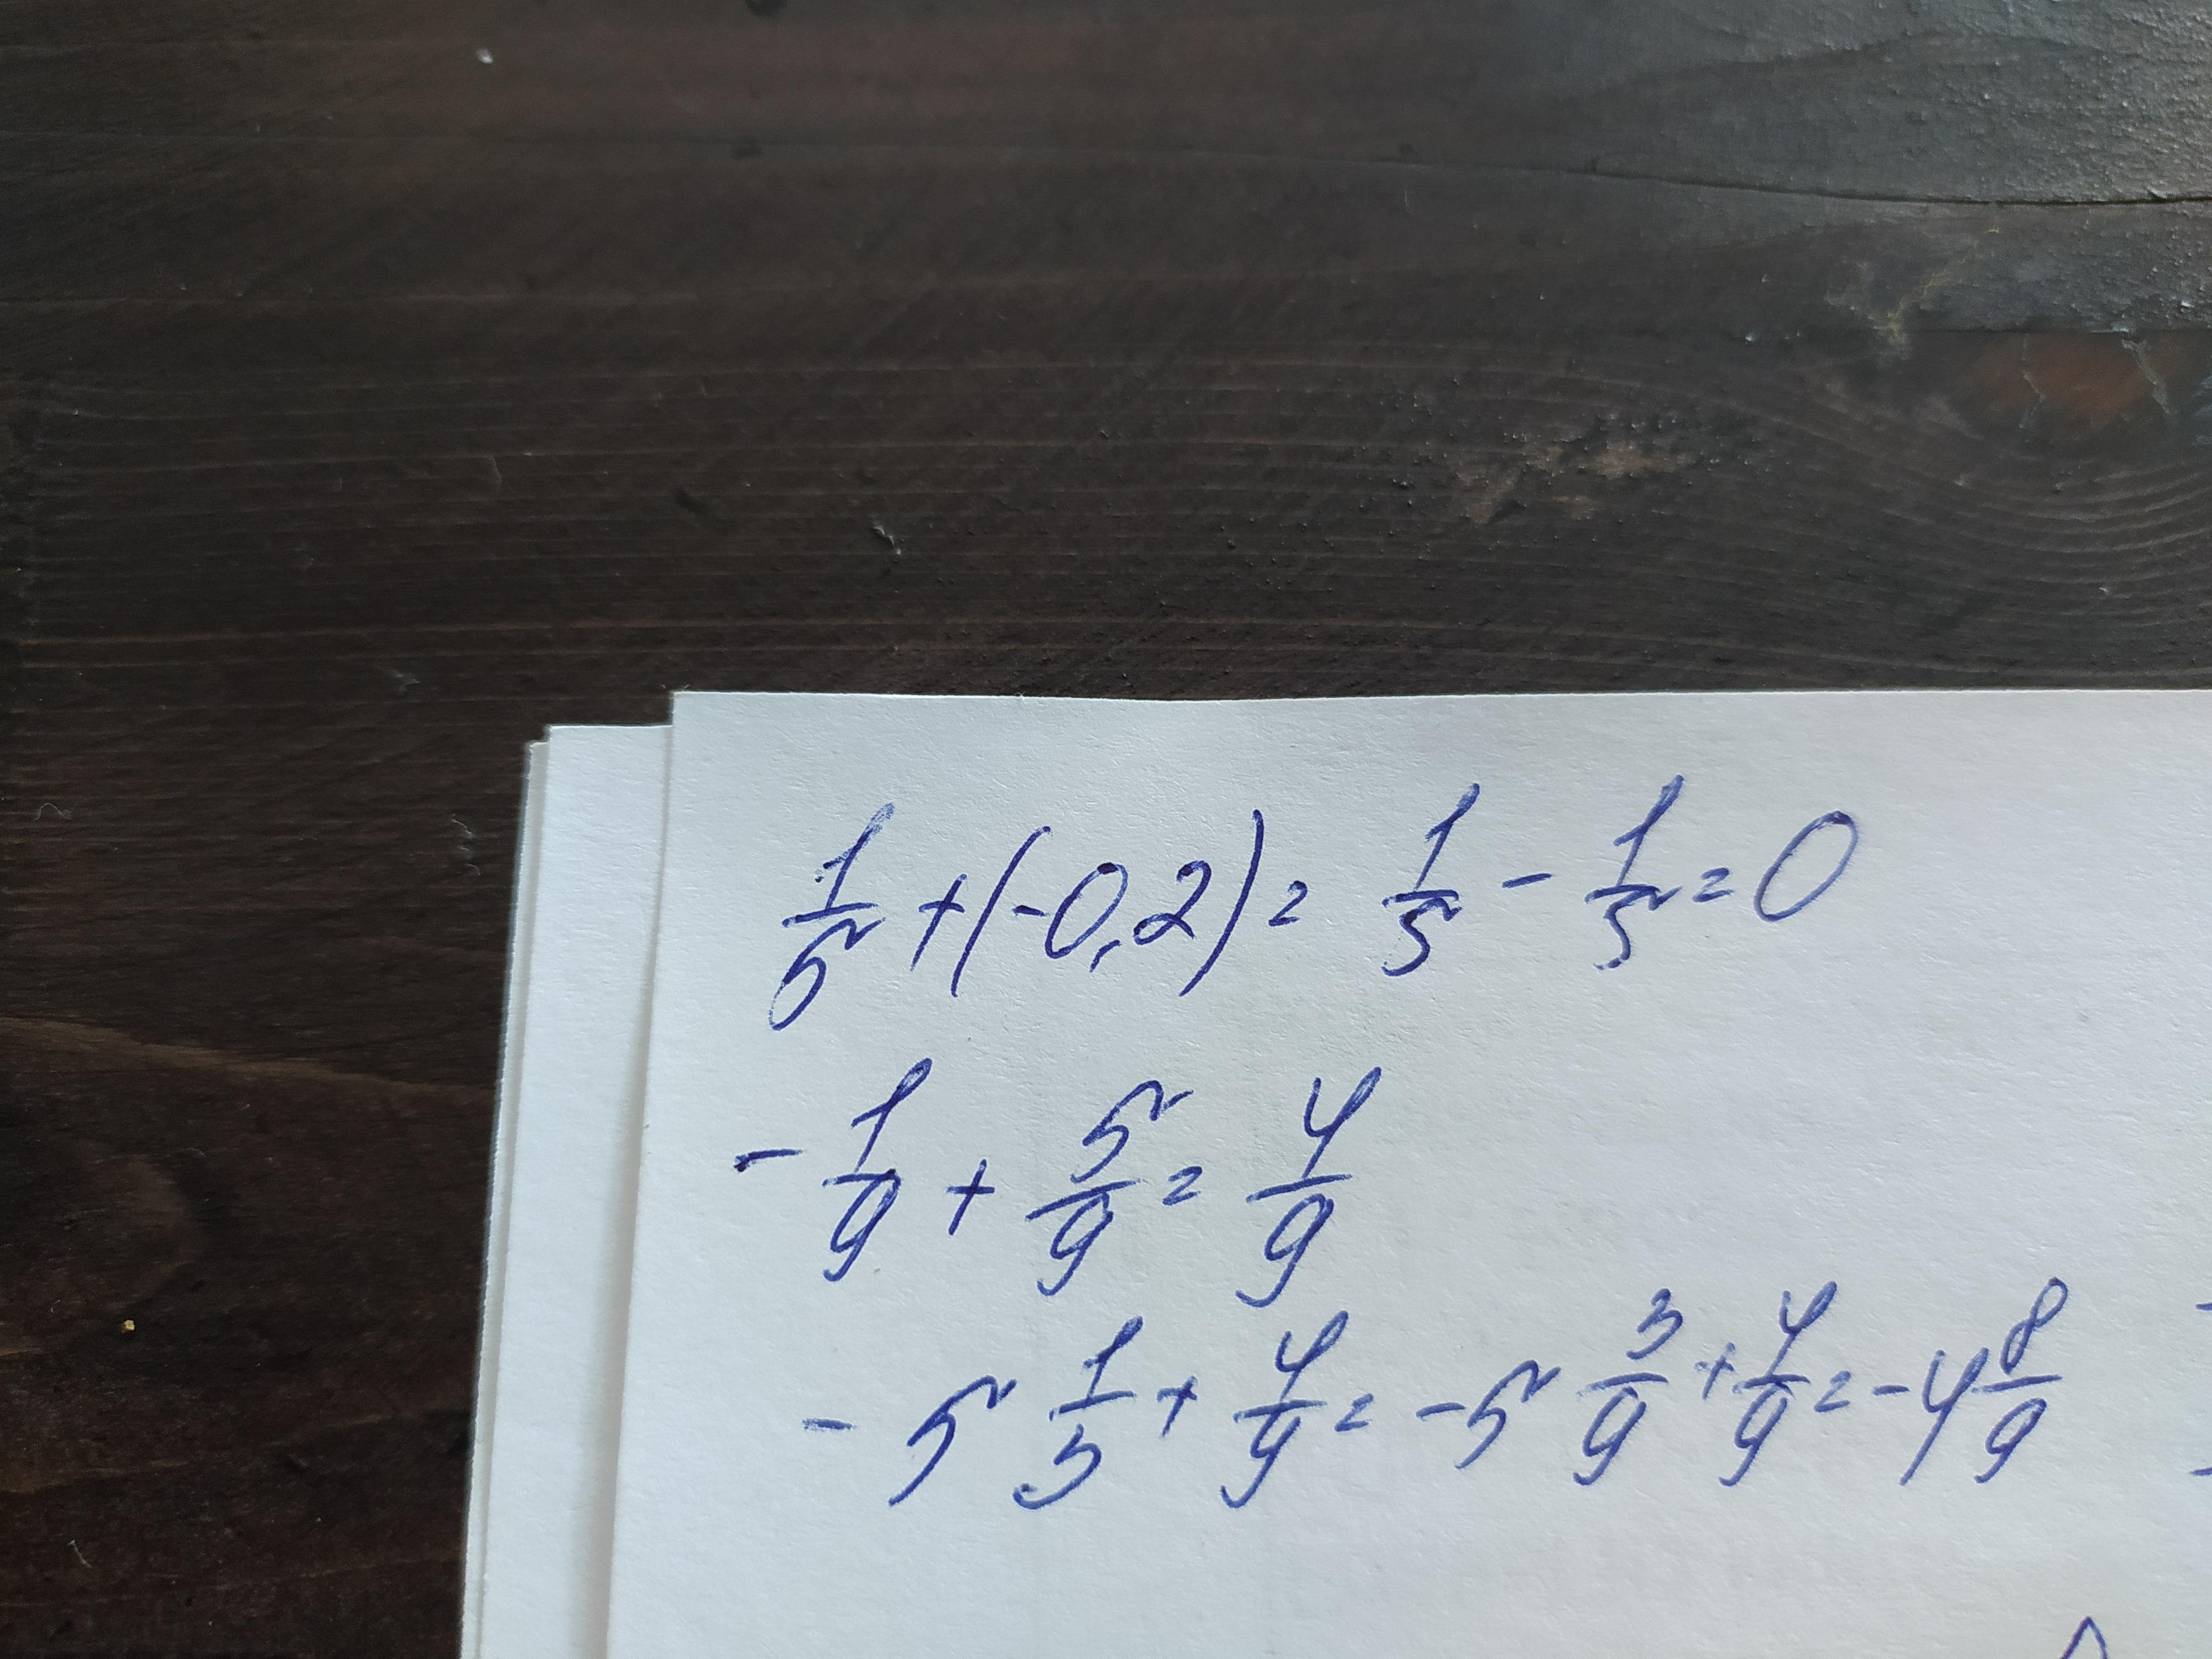 1/5 + (-0,2) = 1/5 - 1/5 = 0
- 1/9 + 5/9 = 4/9
- 5 1/3 + 4/9 = -5 3/9 + 4/9 = -4 8/9